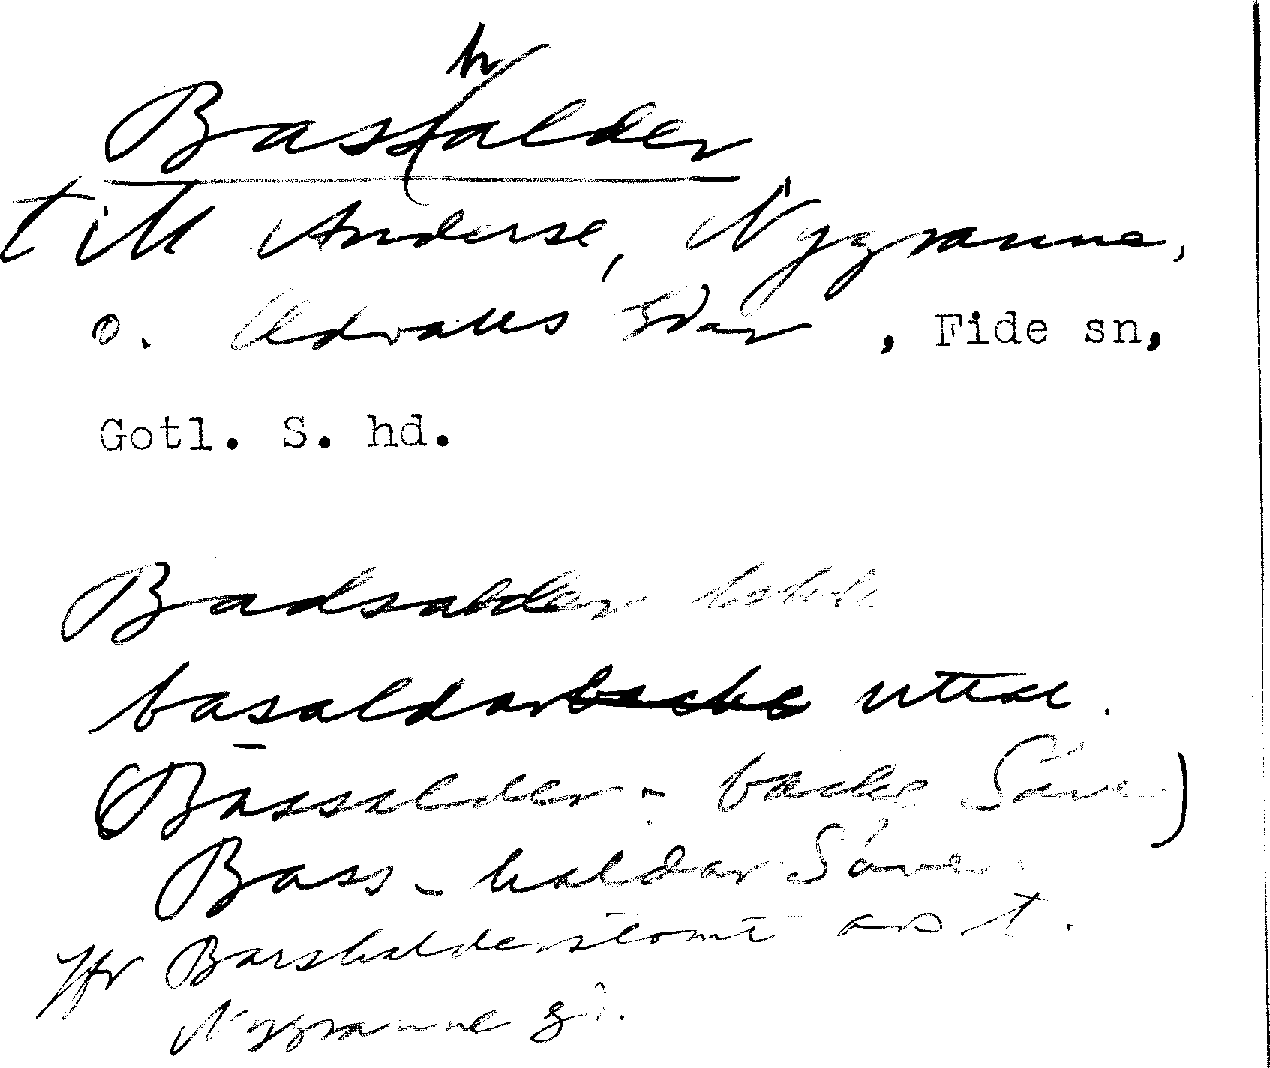 h
Bassalder
till Anderse, Nygranne,
o. Udvalls , Fide sn,
Gotl. S. hd.
Badsalder
basaldarbacke uttal.
(Bassalder - backe Säve)
Bass-haldar Säve.
Jfr Barshalderstomt avs t.
Nygranne gd.